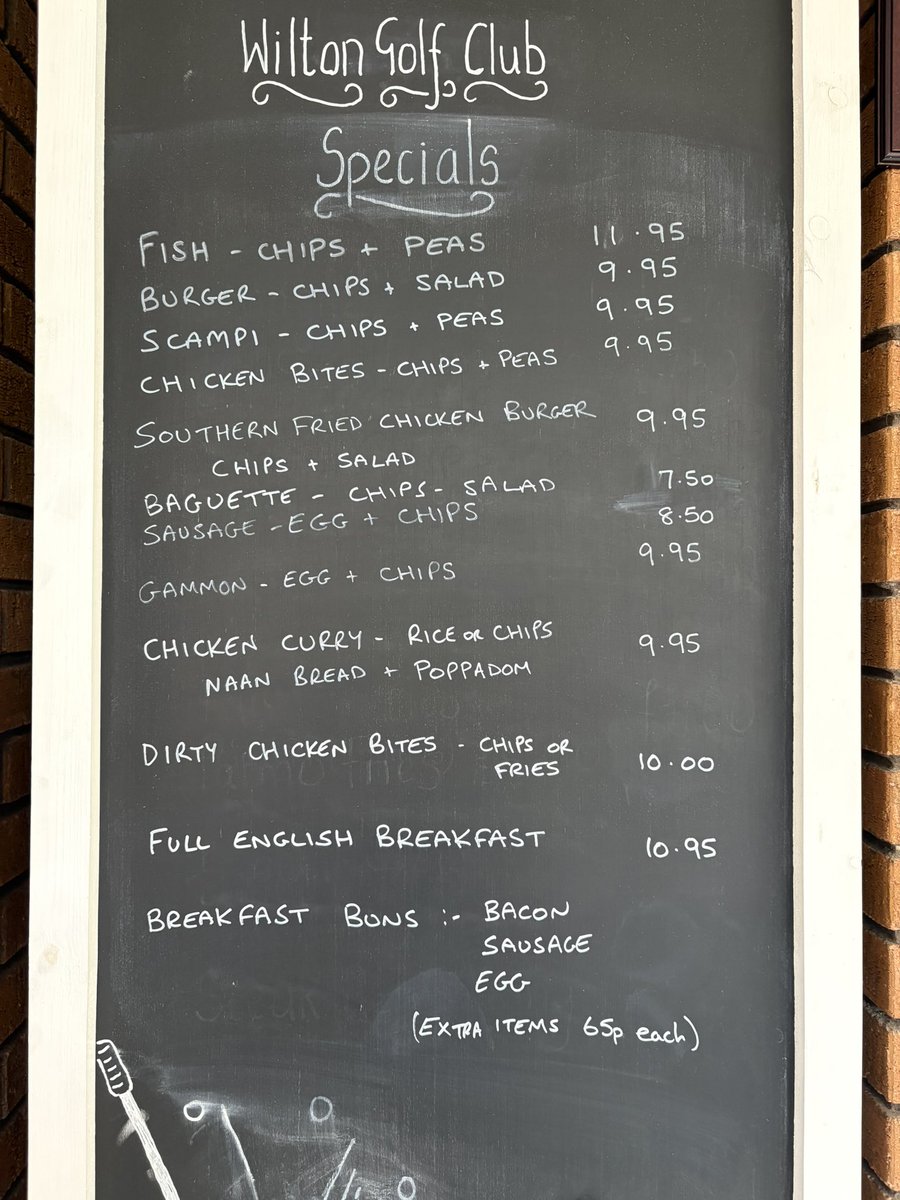 Wilton Golf Club
Specials
FISH - CHIPS + PEAS 11.95
BURGER - CHIPS + SALAD 9.95
SCAMPI - CHIPS + PEAS 9.95
CHICKEN BITES - CHIPS + PEAS 9.95
SOUTHERN FRIED CHICKEN BURGER 9.95
CHIPS + SALAD
BAGUETTE - CHIPS - SALAD 7.50
SAUSAGE - EGG + CHIPS 8.50
GAMMON - EGG + CHIPS 9.95
CHICKEN CURRY - RICE OR CHIPS 9.95
NAAN BREAD + POPPADOM
DIRTY CHICKEN BITES - CHIPS OR
FRIES 10.00
FULL ENGLISH BREAKFAST 10.95
BREAKFAST BUNS :- BACON
SAUSAGE
EGG
(EXTRA ITEMS 65p each)